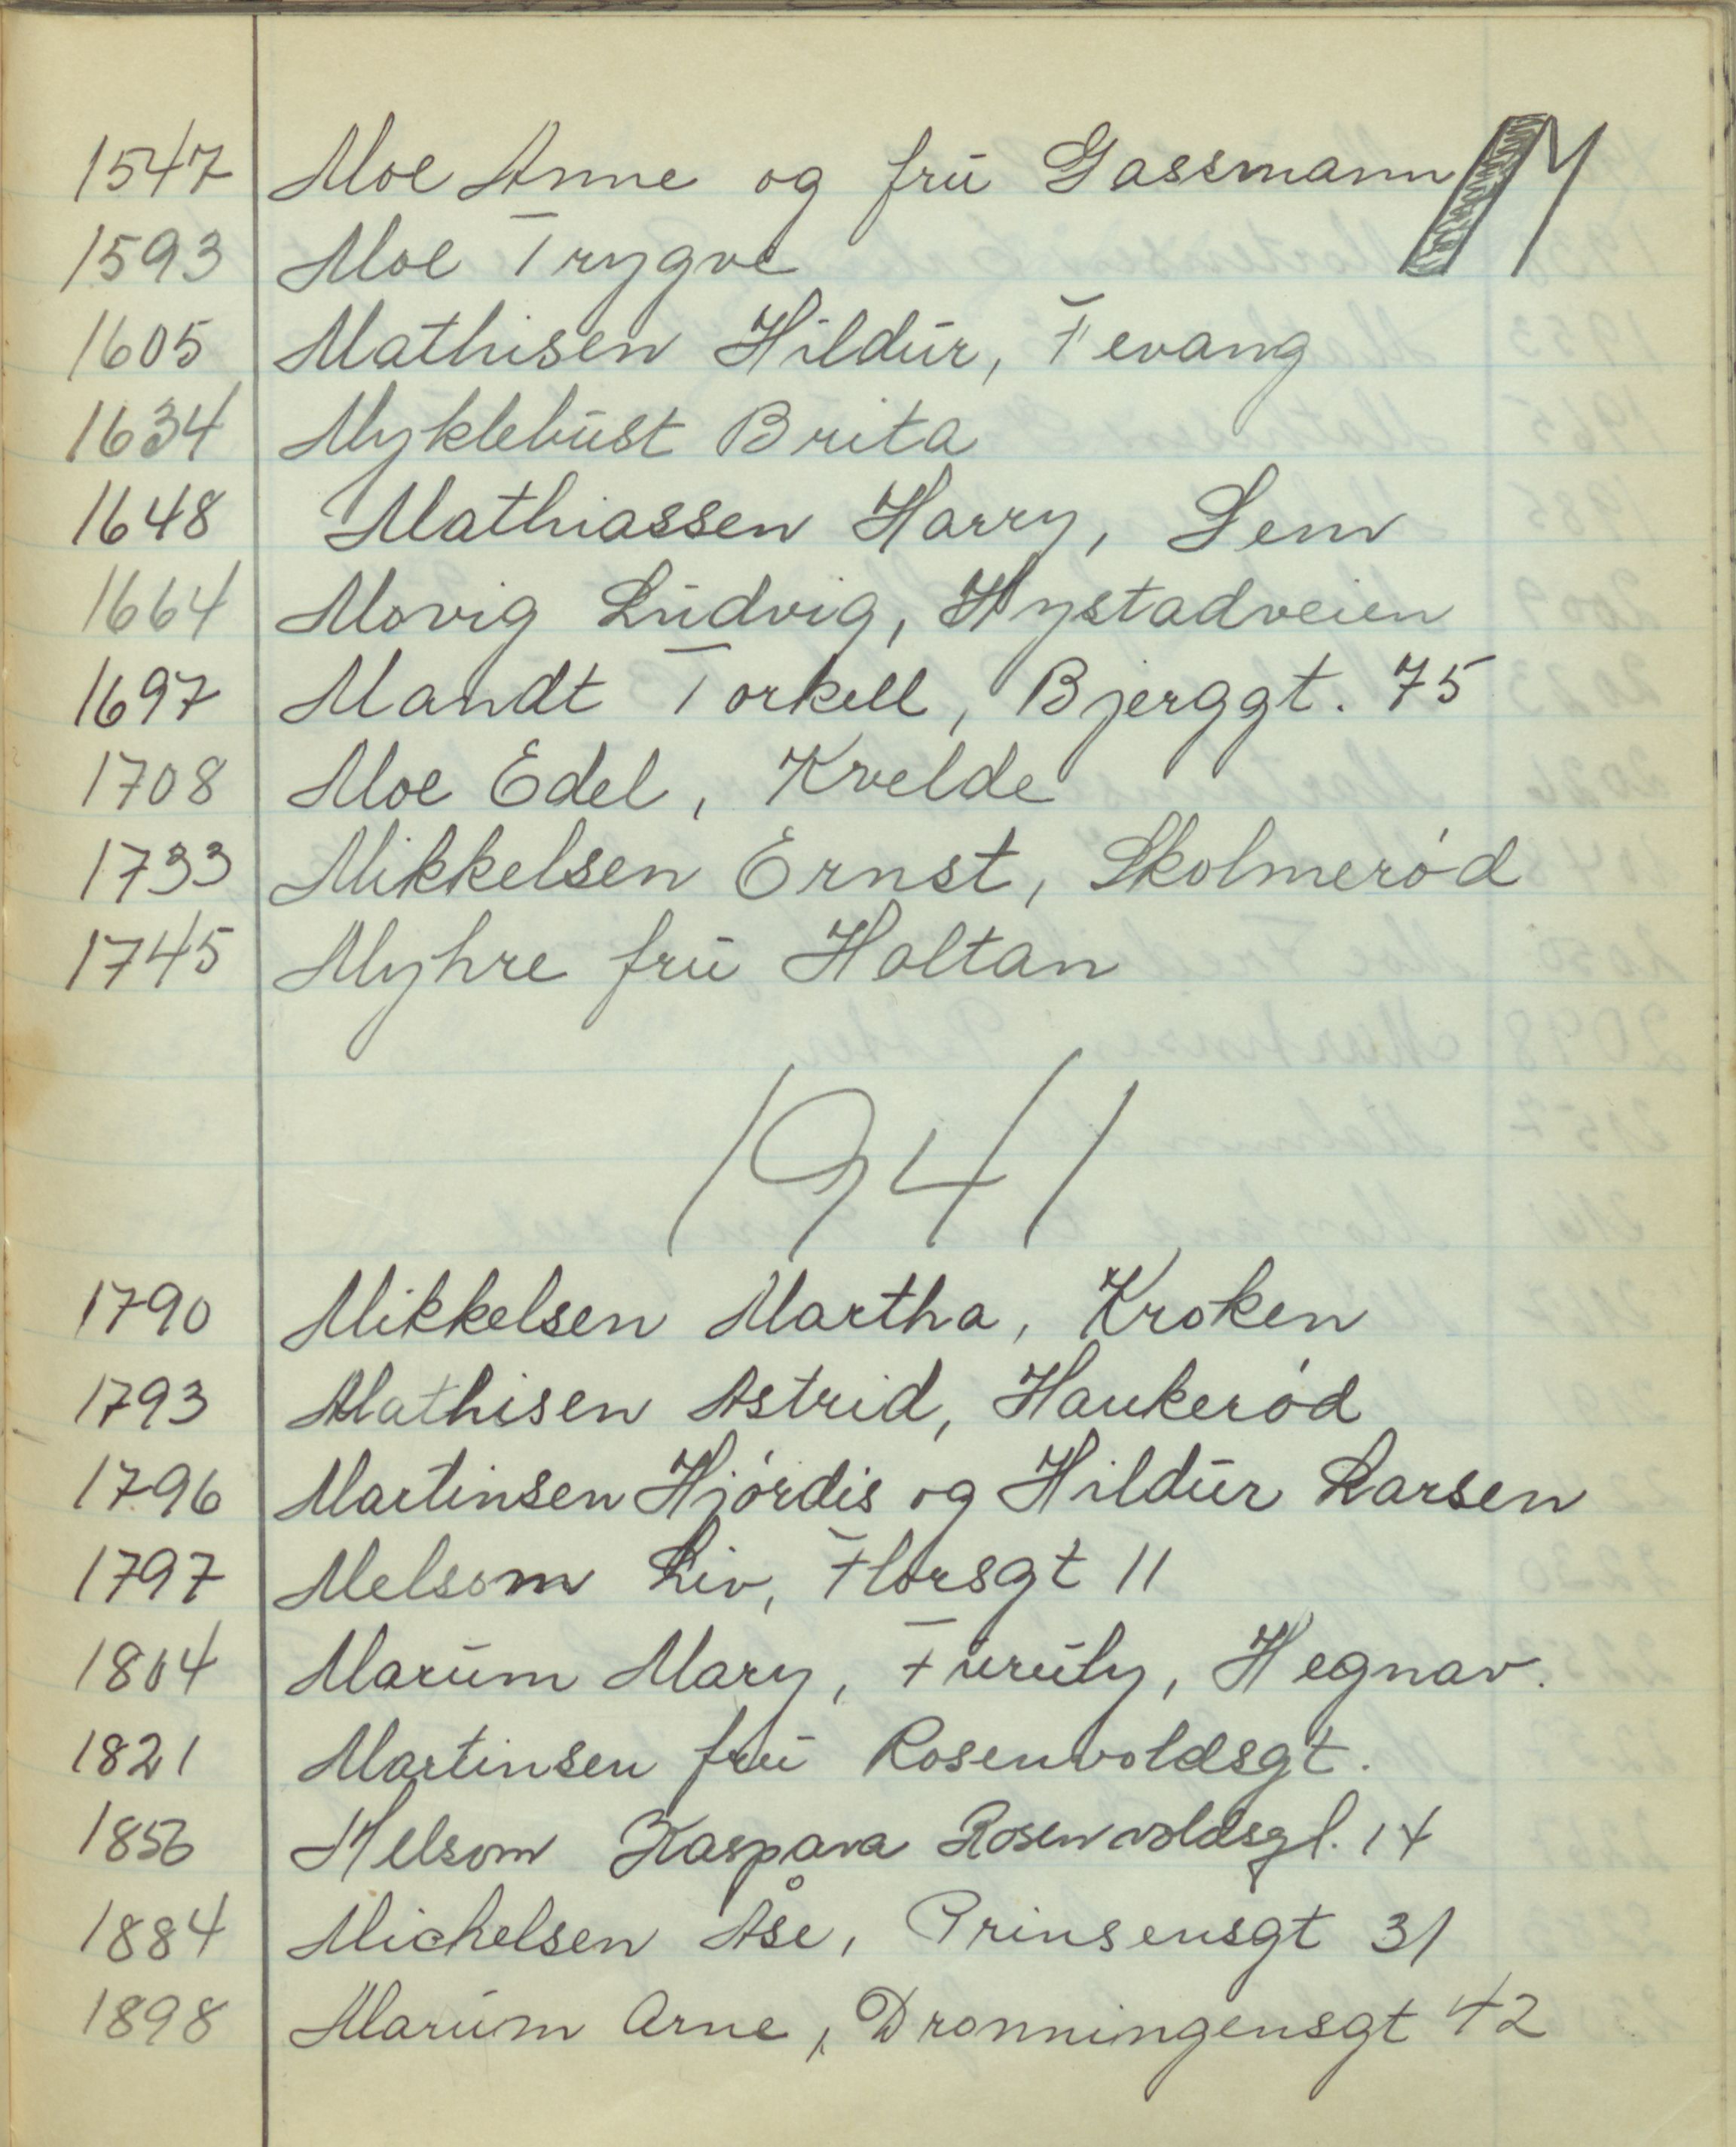 M
1547 Moe Anne og frū Gassmann
1593 Moe Trygve
1605 Mathisen Hildūr, Fevang
1634 Myklebūst Brita
1648 Mathiassen Harry, Sem
1664 Movig Lūdvig, Nystadveien
1697 Mandt Torkell, Bjerggt. 75
1708 Moe Edel, Kvelde
1733 Mikkelsen Ernst, Skolmerød
1745 Myhre frū Holtan
1941
1790 Mikkelsen Martha, Kroken
1793 Mathisen Astrid, Haukerød
1796 Martinsen Hjørdis og Hildūr Larsen
1797 Melsom Liv, Florsgt 11
1804 Marūm Mary, Fūrūly, Hegnav.
1821 Martinsen frū Rosenvoldsgt.
1856 Melsom Kaspara Rosenvoldsgt. 14
1884 Michelsen Åse, Prinsensgt 31
1898 Marūm Arne, Dronningensgt 42